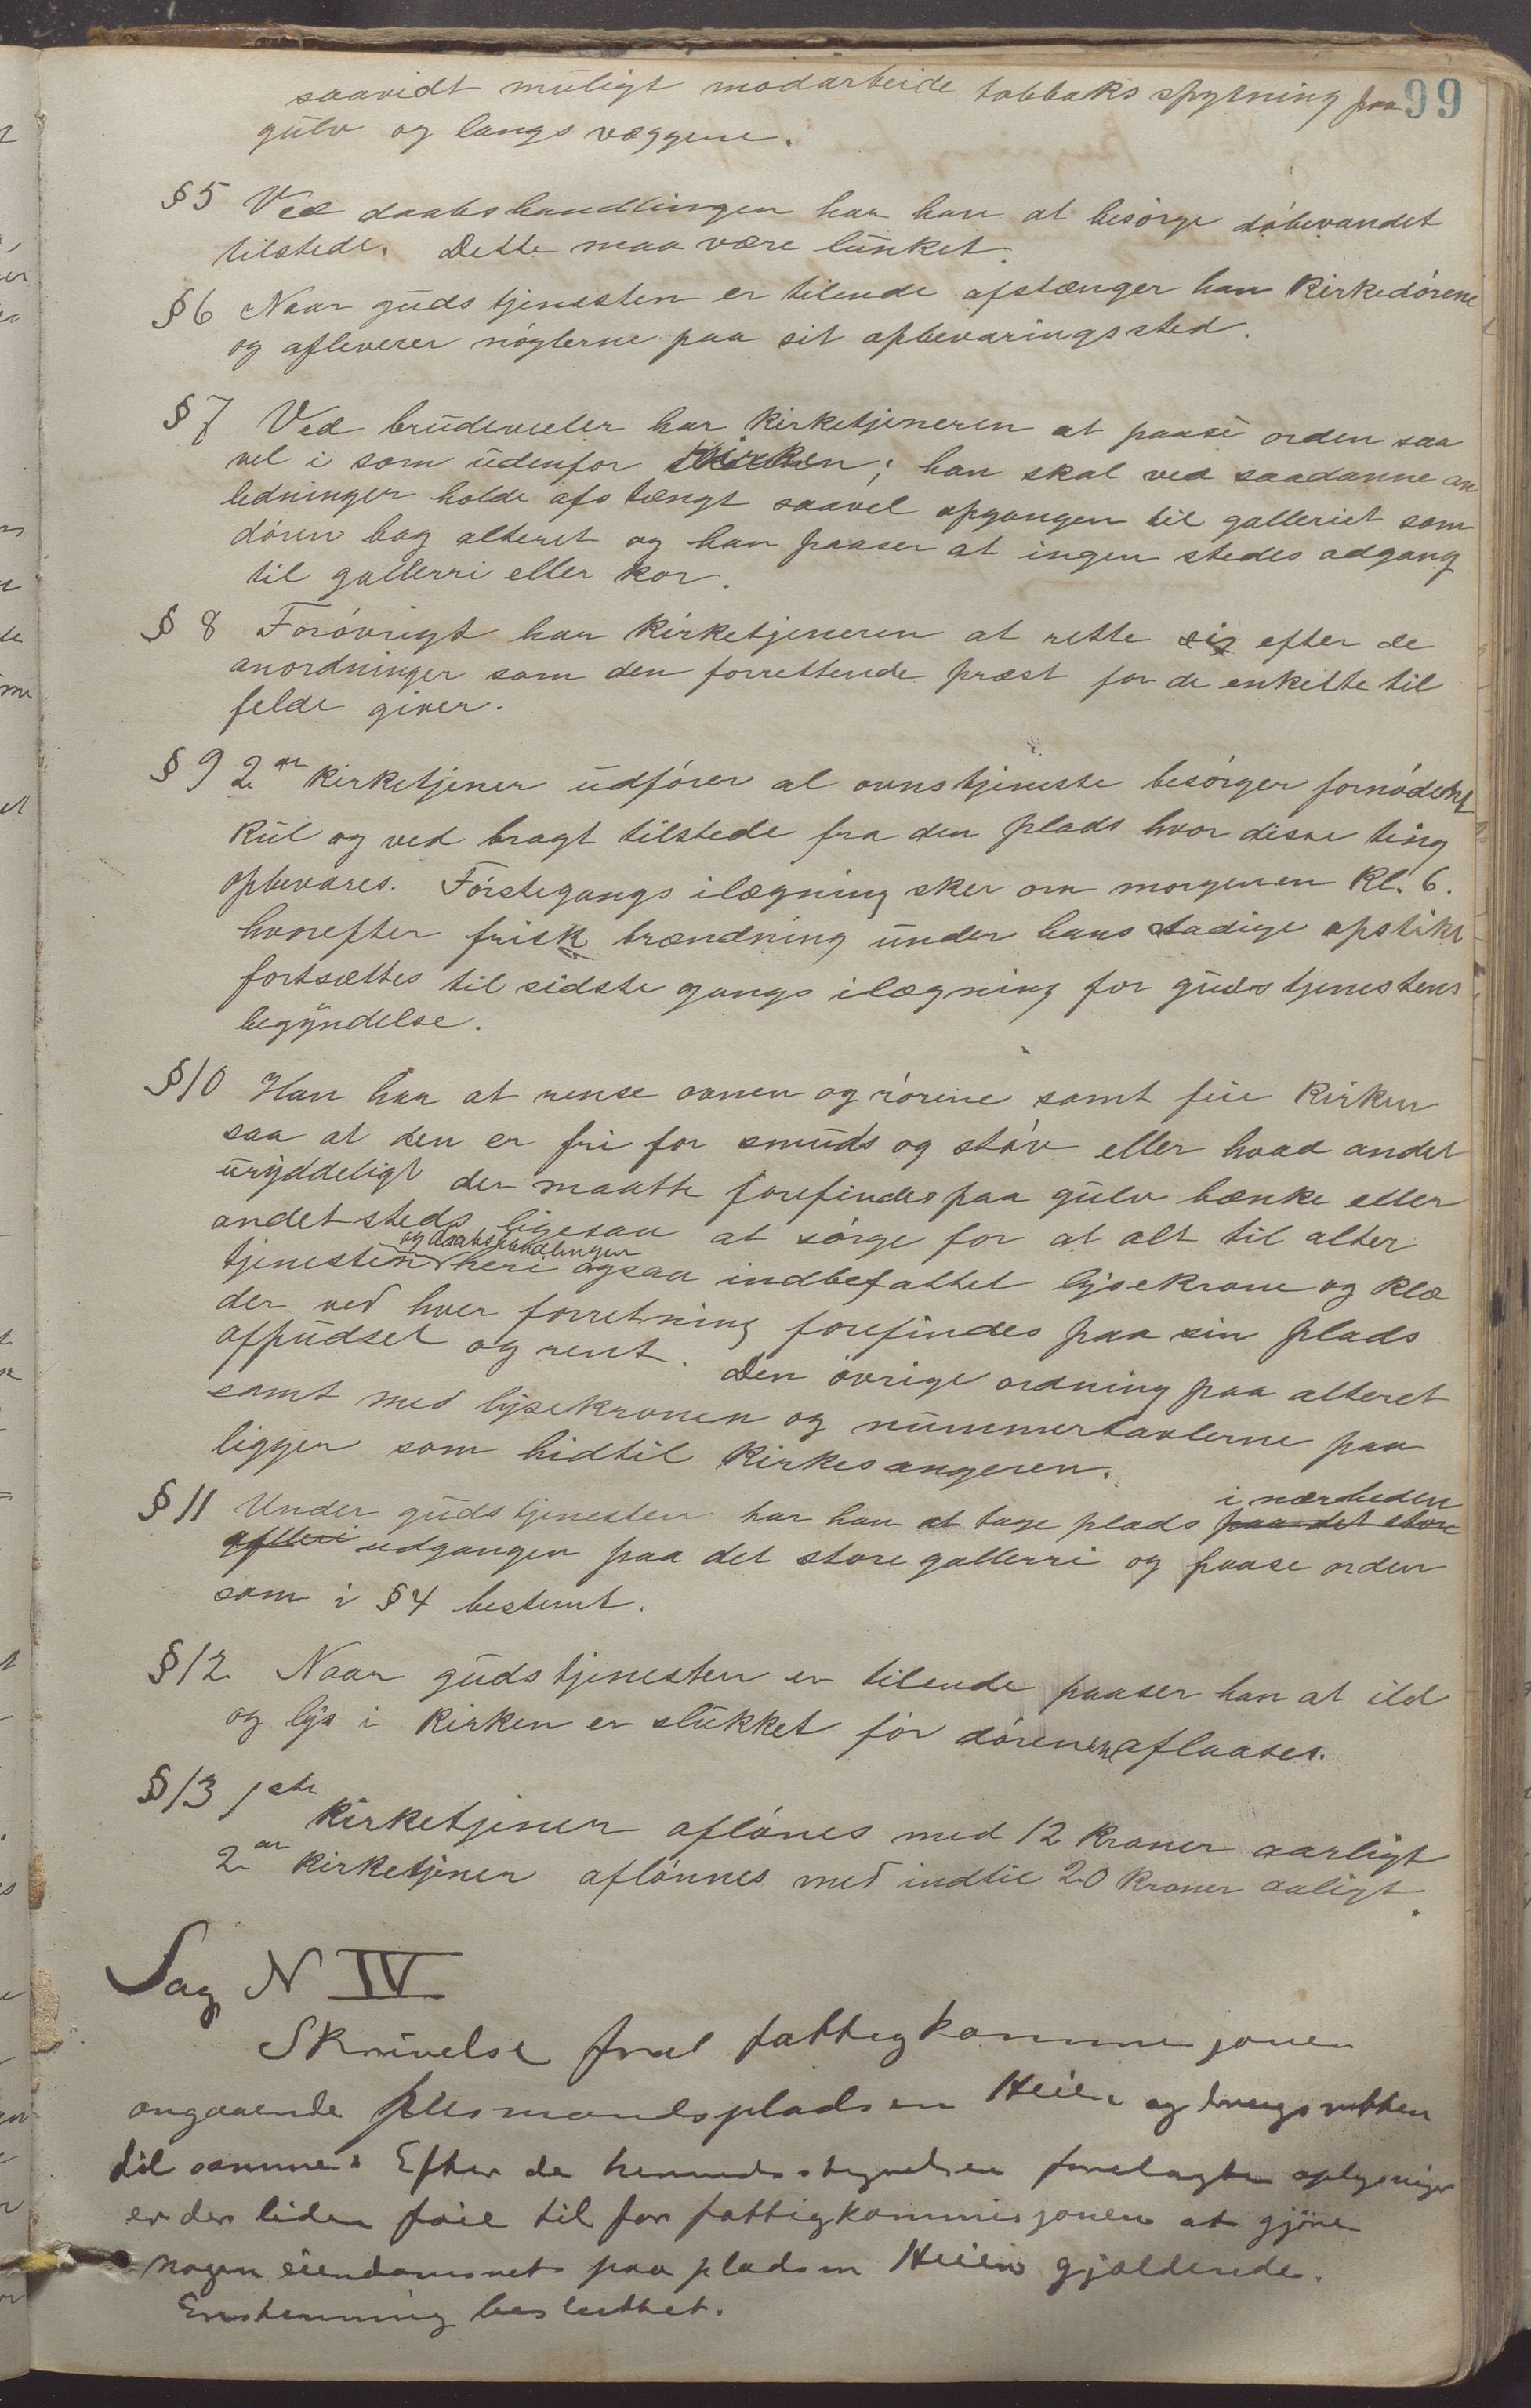 99
saavidt muligt modarbeide tobbaks spytning paa
gulv og langs væggene.
§ 5 Ved daabshandlingen har han at besørge døbevandet
tilstede. Dette maa være lunket.
§ 6 Naar guds tjenesten er tilende afstænger han Kirkedørene
og afleverer nøglerne paa sit opbevaringssted.
§ 7 Ved brudevieler har Kirketjeneren at paase orden saa
vel i som udenfor Kirken; han skal ved saadanne an
ledninger holde afstængt saavel opgangen til galleriet som
døren bag alteret og han paaser at ingen stedes adgang
til gallerri eller kor.
§ 8 Forøvrigt har Kirketjeneren at rette sig efter de
anordninger som den forrettende præst for de enkelte til
felde giver.
§ 9 2en Kirketjener udfører al ovnstjeneste besørger fornødent
Kul og ved bragt tilstede fra den plads hvor disse ting
opbevares. Førstegangs ilægning sker om morgenen Kl. 6.
hvorefter frisk brændning under hans stadige opsikt
fortsættes til sidste gangs ilægning før guds tjenestens
begyndelse.
§ 10 Han har at rense ovnen og rørene samt feie Kirken
saa at den er fri for smuds og støv eller hvad andet
uryddeligt der maatte forefindes paa gulv bænke eller
andetsteds, ligesaa at sørge for at alt til alter
og daabshandlingen
tjenesten heri ogsaa indbefattet lysekrone og klæ
der ved hver forretning forefindes paa sin plads
afpudset og rent. Den øvrige ordning paa alteret
samt med lysekronen og nummertavlerne paa
ligger som hidtil Kirkesangeren.
§ 11 Under gudstjenesten har han at tage plads paa det store i nærheden
galleri udgangen paa det store gallerri og paase orden
som i § 4 bestemt.
§ 12 Naar gudstjenesten er tilende paaser han at ild
og lys i Kirken er slukket før dørene aflaases.
§ 13 1ste Kirketjener aflønes med 12 Kroner aarligt
2en Kirketjener aflønnes med indtil 20 Kroner aaligt.
Sag N IV
Skrivelse fra fattigkommisjonen
angaaende plesmandspladsen Heien og brugsretten
til samme. Efter de herredsstyrelsen forelagte oplysninger
er der liden føie til for fattigkommisjonen at gjøre
nogen eiendomsret paa pladsen Heien gjældende.
Enstemmig besluttet.